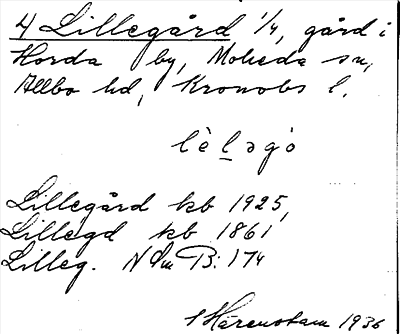 4 Lillegård 1/4, gård i
Horda by, Moheda sn,
Allbo hd, Kronobs l.
lèlǝgó
Lillegård kb 1925,
Lillegd kb 1861
Lilleg. N Sm B: 174
Härenstam 1936